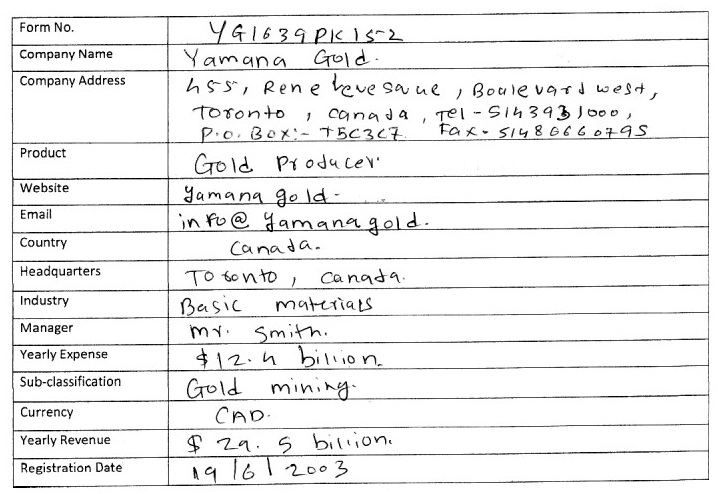 Form No. YG1639PK15-2
Company Name Yamana Gold.
Company Address 455, Rene Levesque, Boulevard west,
Toronto, Canada, Tel - 5143931000,
P.O. Box:- T5C3C7 Fax - 51486660795
Product Gold Producer
Website yamana gold -
Email info@yamanagold.
Country Canada.
Headquarters Toronto, Canada.
Industry Basic materials
Manager Mr. Smith.
Yearly Expense $12.4 billion
Sub-classification Gold mining.
Currency CAD.
Yearly Revenue $ 29.5 billion.
Registration Date 19/6/2003